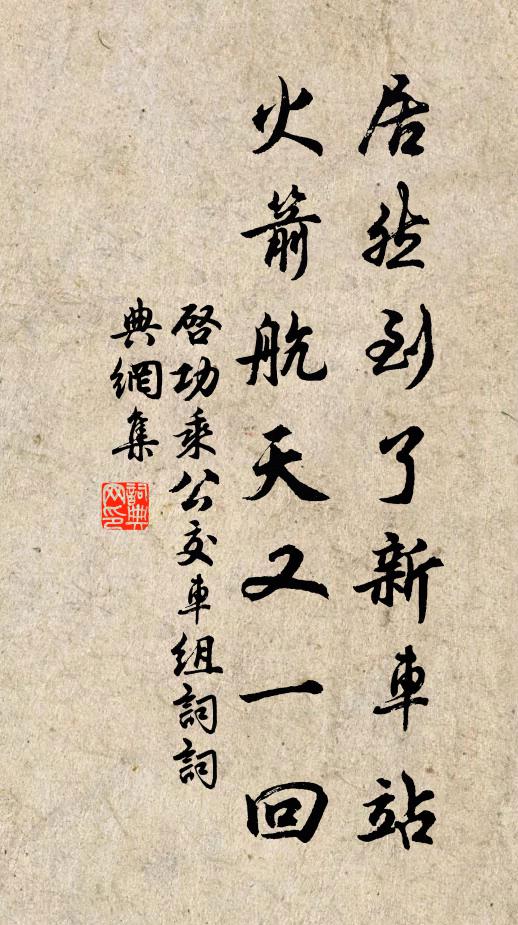 居然到了新車站
火箭航天又一回
啓功乘公交車組詞詞
典網集
詞典
网印